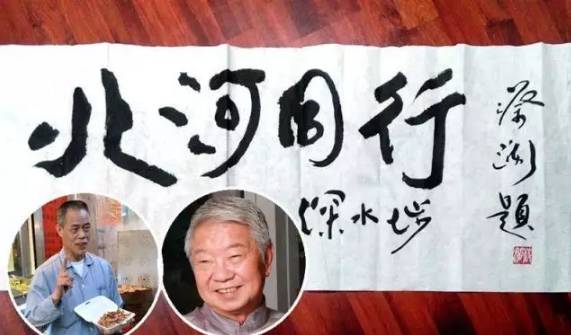 北河同行
深水埗
蔡瀾題